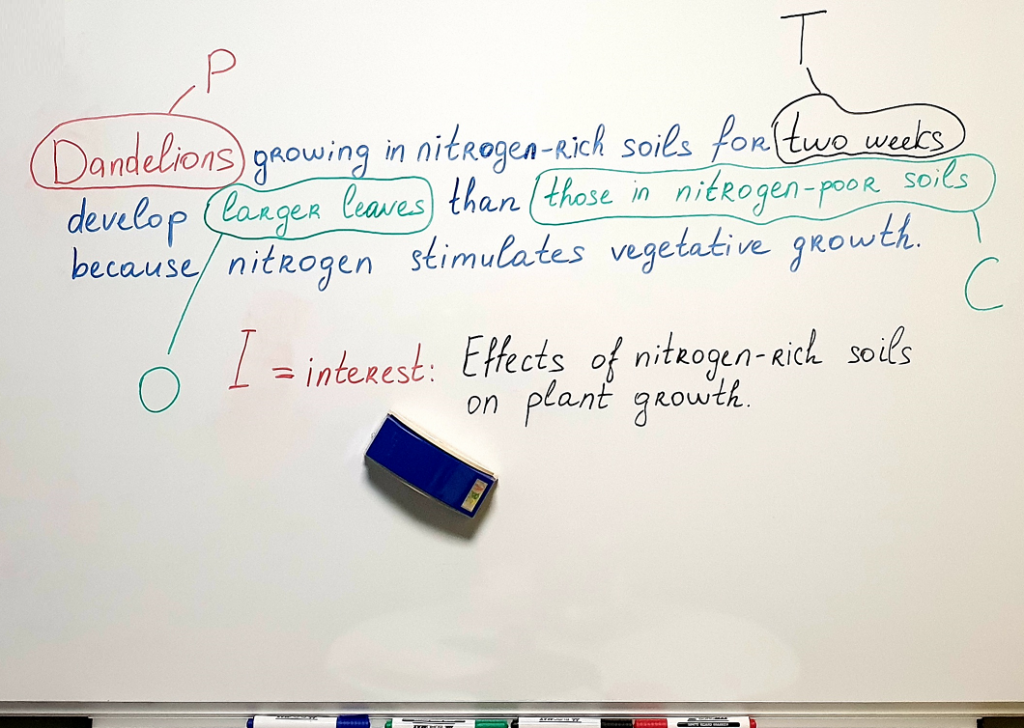 T
P
Dandelions growing in nitrogen-rich soils for two weeks
develop larger leaves than those in nitrogen-poor soils
because nitrogen stimulates vegetative growth.
C
O
I = interest: Effects of nitrogen-rich soils
on plant growth.